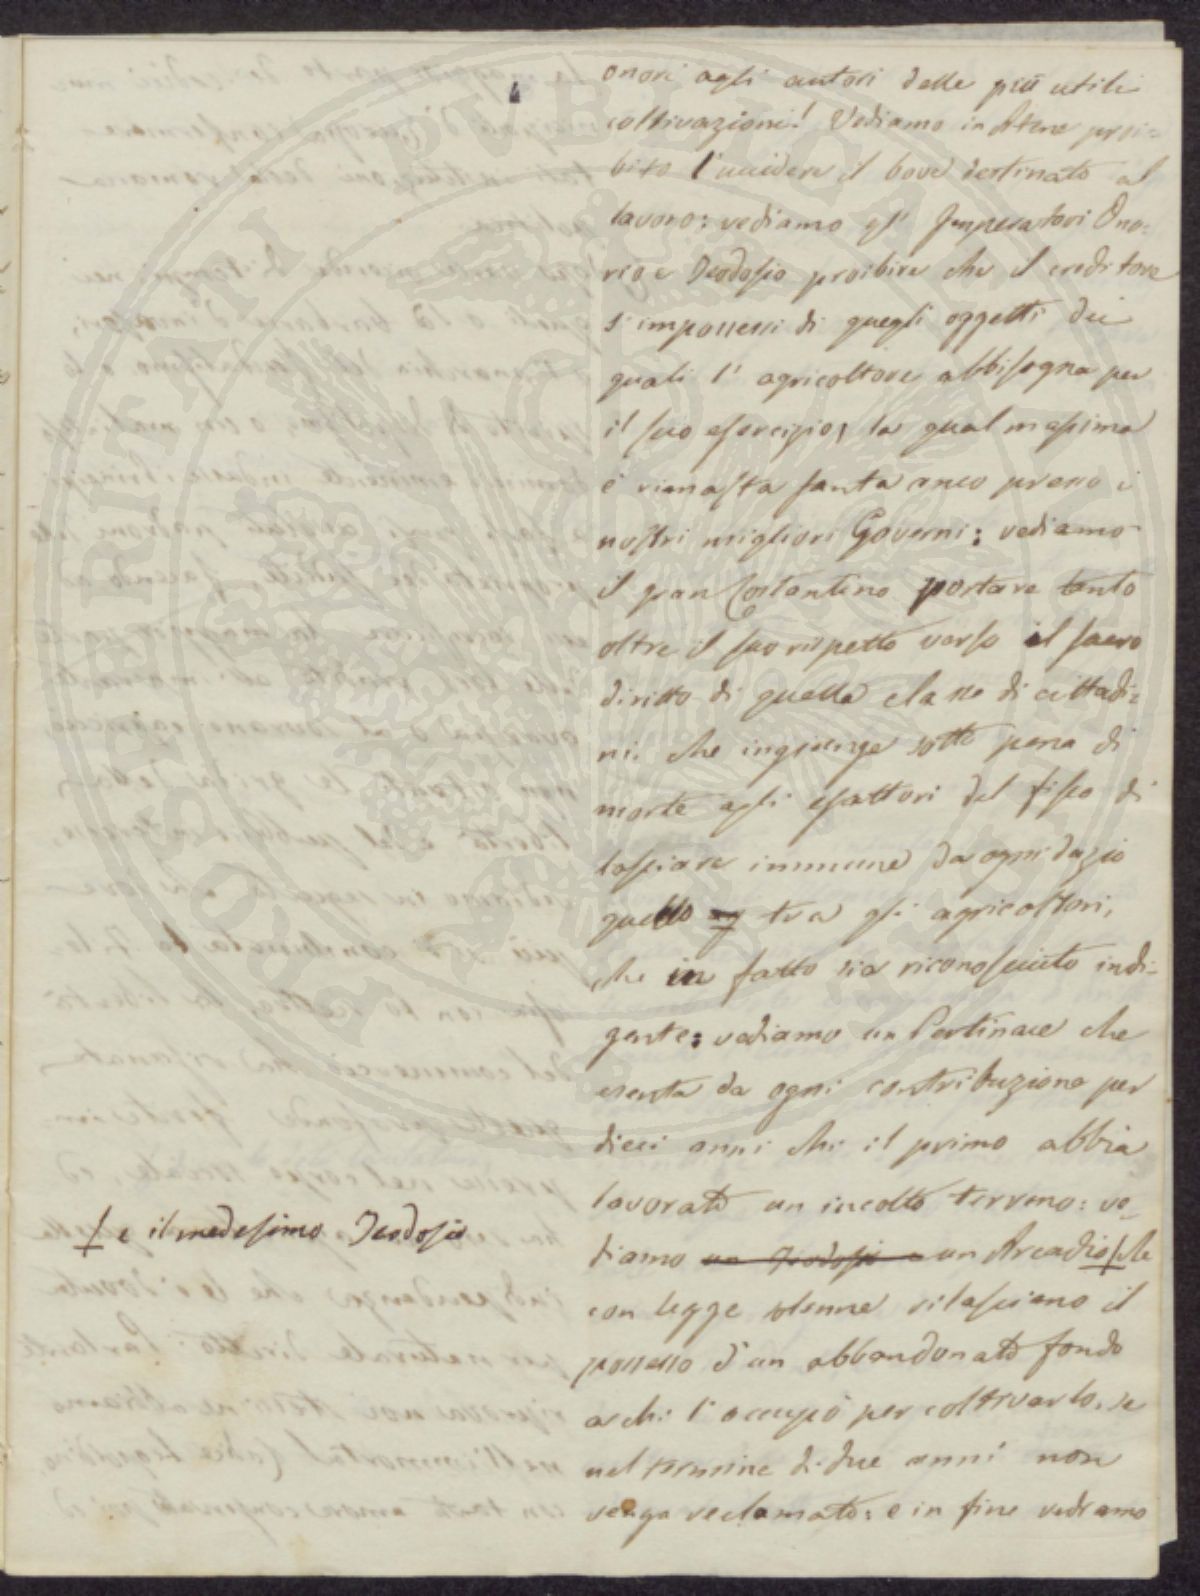 onori agli autori delle più utili
coltivazioni! Vediamo in Atene proi=
bito l'uccidere il bove destinato al
lavoro: vediamo gl' Imperatori Ono=
rio e Teodosio proibire che il creditore
s'impossessi di quegli oggetti dei
quali l' agricoltore abbisogna per
il suo esercizio, la qual massima
è rimasta santa anco presso i
nostri migliori Governi: vediamo
il gran Costantino portare tanto
oltre il suo rispetto verso il sacro
diritto di quella classe di cittadi=
ni che ingiunge sotto pena di
morte agli esattori del fisco di
lasciare immune da ogni dazio
quello ag tra gli agricoltori,
che in fatto sia riconosciuto indi=
gente: vediamo un Pertinace che
esenta da ogni contribuzione per
dieci anni chi il primo abbia
lavorato un incolto terreno: ve=
diamo un Teodosio e un Arcadio che
e il medesimo Teodosio
con legge solenne rilasciano il
possesso d'un abbandonato fondo
a chi l'occupò per coltivarlo, se
nel termine di due anni non
venga reclamato: e in fine vediamo